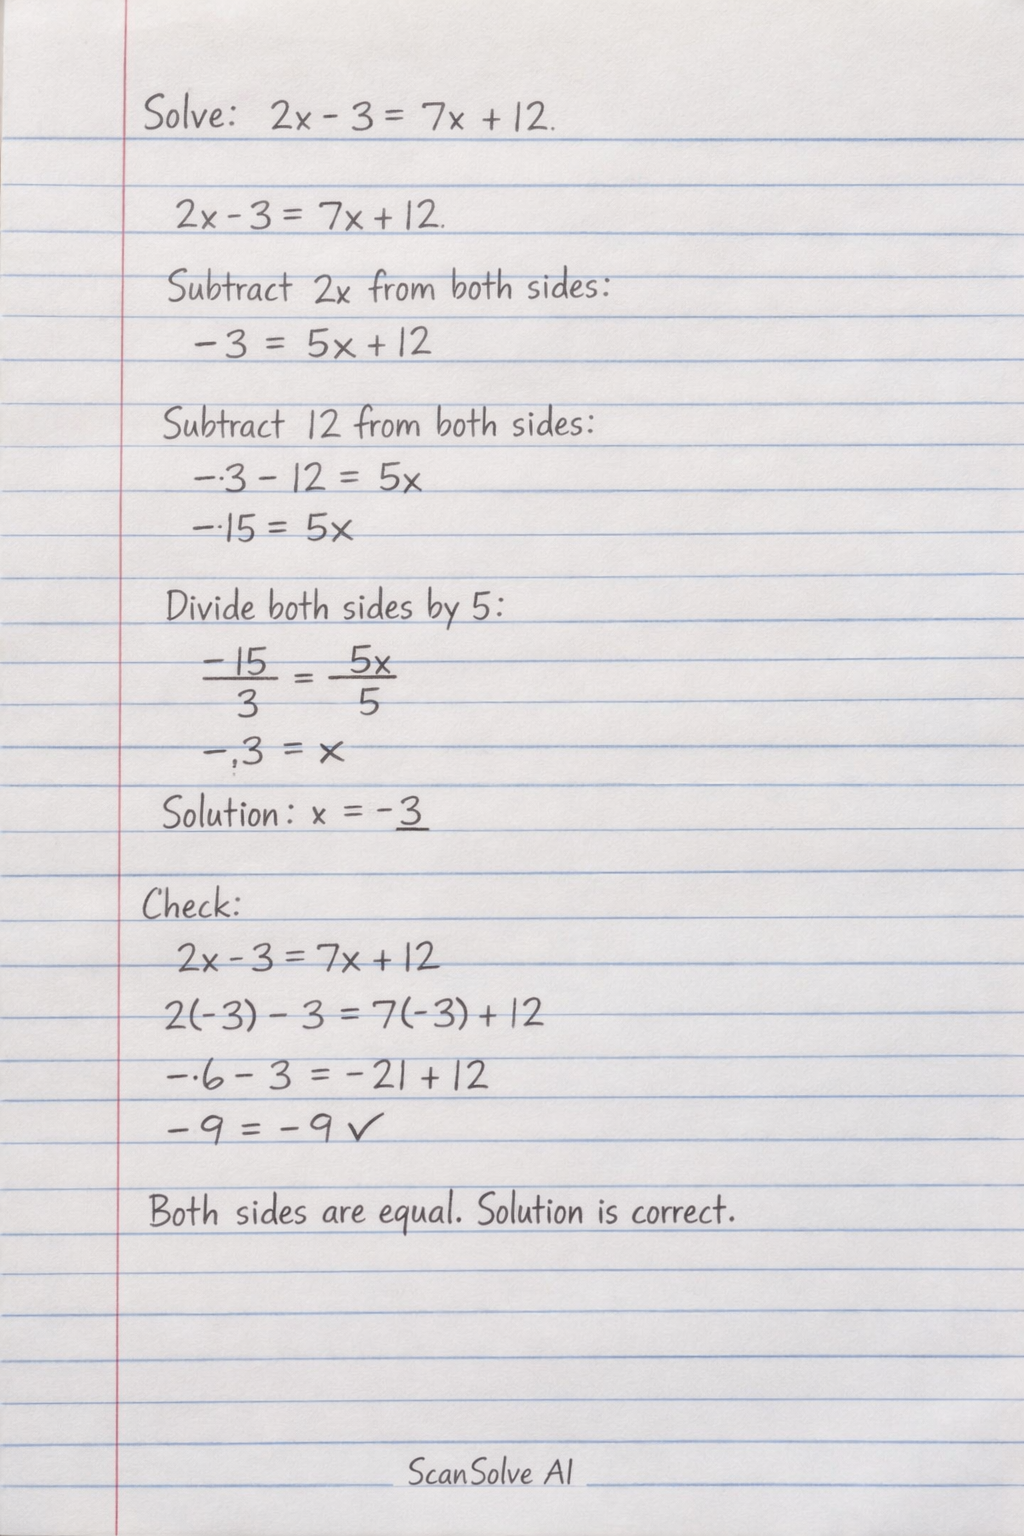 Solve: 2x - 3 = 7x + 12.
2x - 3 = 7x + 12.
Subtract 2x from both sides:
- 3 = 5x + 12
Subtract 12 from both sides:
-·3 - 12 = 5x
-·15 = 5x
Divide both sides by 5:
-15/3 = 5x/5
-,3 = x
Solution: x = -3
Check:
2x - 3 = 7x + 12
2(-3) - 3 = 7(-3) + 12
-·6 - 3 = -21 + 12
- 9 = - 9 ✓
Both sides are equal. Solution is correct.
ScanSolve AI